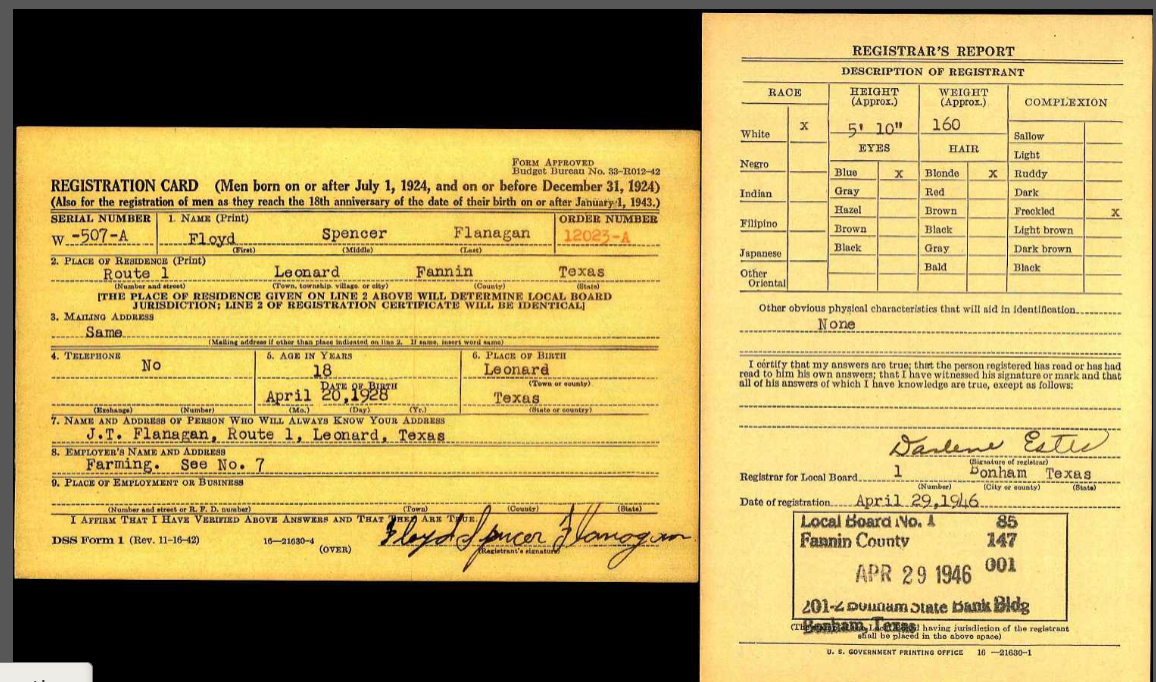 FORM APPROVED
Budget Bureau No. 33-R012-42
REGISTRATION CARD (Men born on or after July 1, 1924, and on or before December 31, 1924)
(Also for the registration of men as they reach the 18th anniversary of the date of their birth on or after January 1, 1943.)
SERIAL NUMBER 1. NAME (Print) ORDER NUMBER
W -507-A Floyd Spencer Flanagan 12023-A
(First) (Middle) (Last)
2. PLACE OF RESIDENCE (Print)
Route 1 Leonard Fannin Texas
(Number and street) (Town, township, village, or city) (County) (State)
[THE PLACE OF RESIDENCE GIVEN ON LINE 2 ABOVE WILL DETERMINE LOCAL BOARD
JURISDICTION; LINE 2 OF REGISTRATION CERTIFICATE WILL BE IDENTICAL]
3. MAILING ADDRESS
Same
(Mailing address if other than place indicated on line 2. If same, insert word same)
4. TELEPHONE 5. AGE IN YEARS 6. PLACE OF BIRTH
No 18 Leonard
DATE OF BIRTH (Town or county)
April 20,1928 Texas
(Exchange) (Number) (Mo.) (Day) (Yr.) (State or country)
7. NAME AND ADDRESS OF PERSON WHO WILL ALWAYS KNOW YOUR ADDRESS
J.T. Flanagan, Route 1, Leonard, Texas
8. EMPLOYER'S NAME AND ADDRESS
Farming. See No. 7
9. PLACE OF EMPLOYMENT OR BUSINESS
(Number and street or R. F. D. number) (Town) (County) (State)
I AFFIRM THAT I HAVE VERIFIED ABOVE ANSWERS AND THAT THEY ARE TRUE.
Floyd Spencer Flanagan
DSS Form 1 (Rev. 11-16-42) 16—21630-4 (Registrant's signature)
(OVER)
REGISTRAR'S REPORT
DESCRIPTION OF REGISTRANT
RACE HEIGHT (Approx.) WEIGHT (Approx.) COMPLEXION
White X 5' 10" 160 Sallow
EYES HAIR Light
Negro Blue X Blonde X Ruddy
Indian Gray Red Dark
Hazel Brown Freckled X
Filipino Brown Black Light brown
Japanese Black Gray Dark brown
Other Oriental Bald Black
Other obvious physical characteristics that will aid in identification
None
I certify that my answers are true; that the person registered has read or has had
read to him his own answers; that I have witnessed his signature or mark and that
all of his answers of which I have knowledge are true, except as follows:
Darlene Estes
(Signature of registrar)
Registrar for Local Board 1 Bonham Texas
(Number) (City or county) (State)
Date of registration April 29,1946
Local Board No. 1 85
Fannin County 147
APR 29 1946 001
201-2 Bonham State Bank Bldg
Bonham, Texas
having jurisdiction of the registrant
shall be placed in the above space)
U. S. GOVERNMENT PRINTING OFFICE 16—21630-1